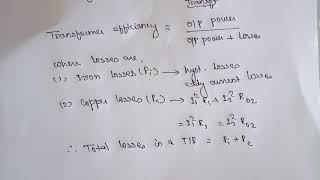 Transf
Transformer efficiency = o/p power
o/p power + losses
where losses are,
(1) Iron losses (Pi) → hyst. losses
eddy current losses
(2) Copper losses (Pc) → I₁²R₁ + I₂²R₀₂
= I₁²R₁ = I₂²R₀₂
∴ Total losses in a T/F = Pi + Pc